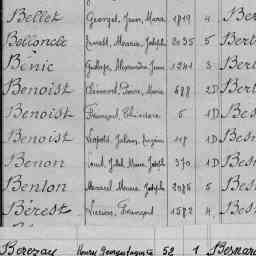 Bellet Georges, Jean, Marie 1819 4 Ber
Belloncle Ernest, Maurice, Joseph 2035 5 Bert
Bénic Alexandre, Jean 1241 3 Bert
Benoist Clément, Pierre, Marie 688 2D Bert
Benoist François, Théodore 6 1D Bes
Benoist Léopold, Julien, Eugène 118 1D Bes
Benon Marie, Joseph 370 1D Bes
Benton Marcel, Marie, Joseph 2086 5 Bes
Bérest Lucien, François 1582 4 Bes
Berezay Henri 52 1 Besnard